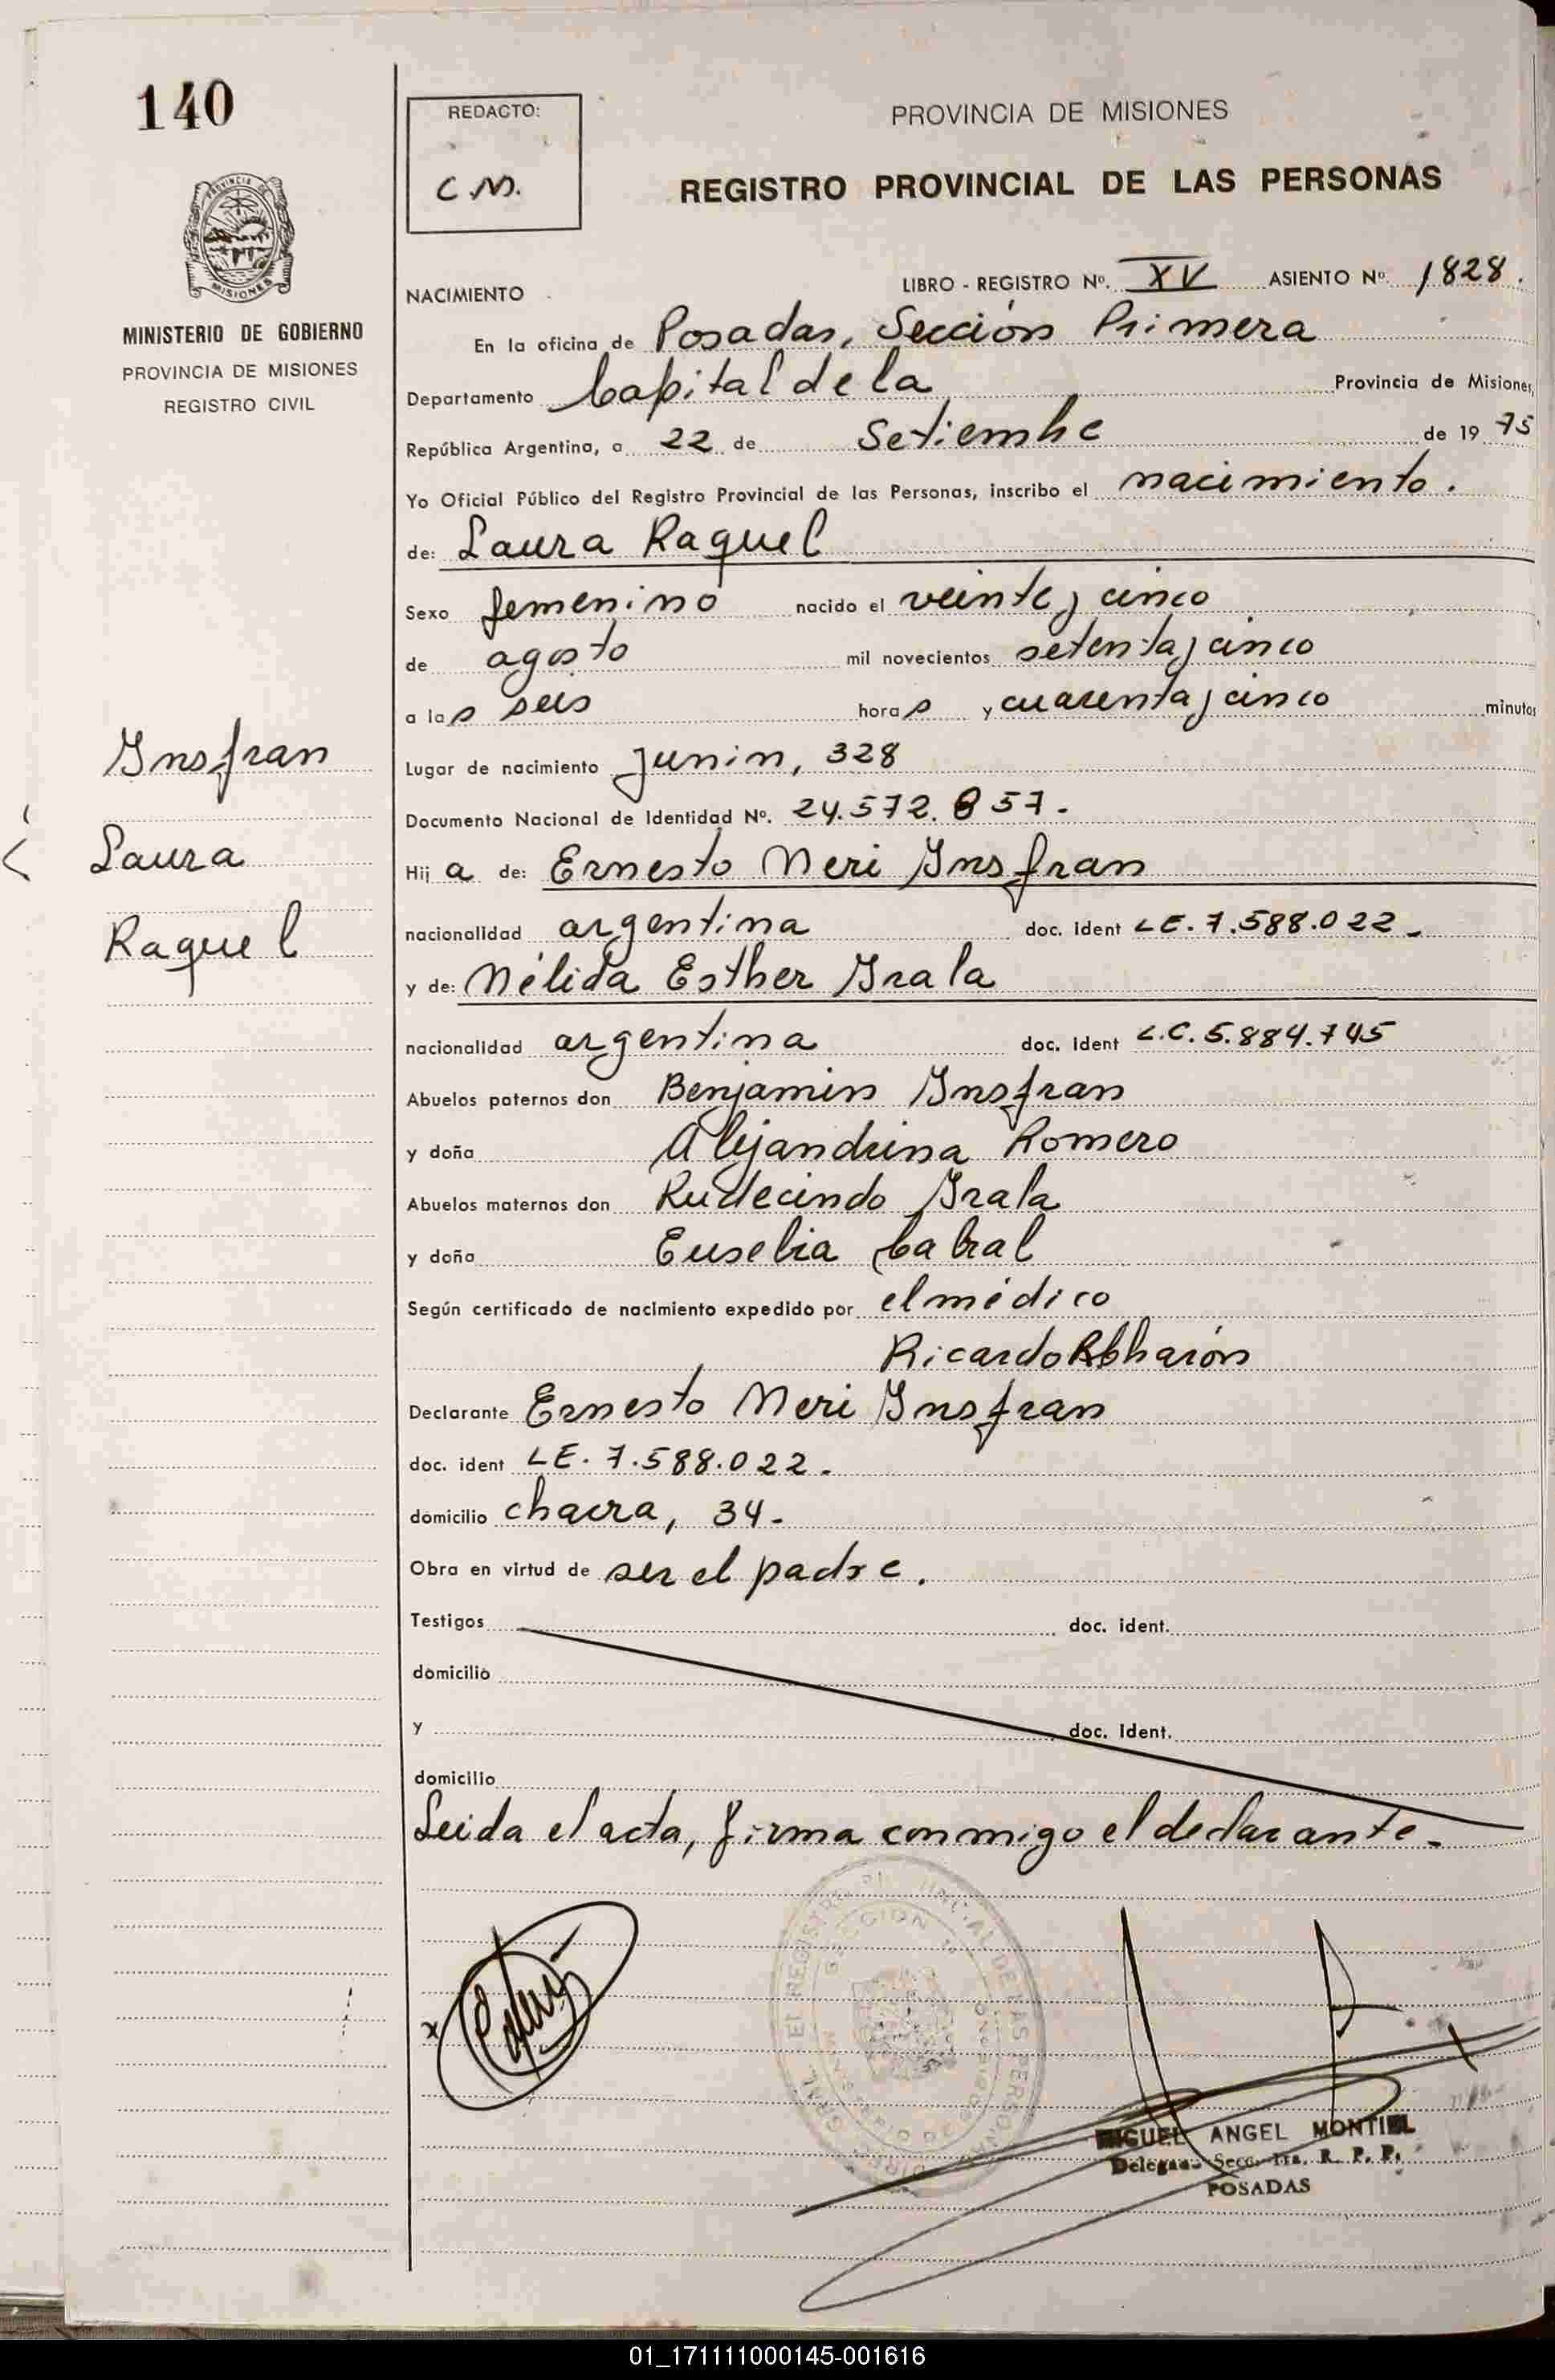 140
MINISTERIO DE GOBIERNO
PROVINCIA DE MISIONES
REGISTRO CIVIL
Insfran
Laura
Raquel
REDACTO:
C.M.
PROVINCIA DE MISIONES
REGISTRO PROVINCIAL DE LAS PERSONAS
NACIMIENTO LIBRO - REGISTRO Nº. XV ASIENTO Nº. 1828.
En la oficina de Posadas, Sección Primera
Departamento Capital de la Provincia de Misiones,
República Argentina, a 22 de Setiembre de 1975
Yo Oficial Público del Registro Provincial de las Personas, inscribo el nacimiento.
de: Laura Raquel
Sexo femenino nacido el veinte y cinco
de agosto mil novecientos setenta y cinco
a las seis horas y cuarenta y cinco minutos
Lugar de nacimiento Junin, 328
Documento Nacional de Identidad Nº. 24.572.857.-
Hija de: Ernesto Neri Insfran
nacionalidad argentina doc. ident LE. 7.588.022.-
y de: Nélida Esther Irala
nacionalidad argentina doc. ident L.C. 5.884.745
Abuelos paternos don Benjamin Insfran
y doña Alejandrina Romero
Abuelos maternos don Rudecindo Irala
y doña Eusebia Cabral
Según certificado de nacimiento expedido por el médico
Ricardo
Declarante Ernesto Neri Insfran
doc. ident LE. 7.588.022.
domicilio chacra, 34-
Obra en virtud de ser el padre.
Testigos doc. ident.
domicilio
y doc. ident.
domicilio
Leida el acta, firma conmigo el declarante.-
MIGUEL ANGEL MONTIEL
Secc. 1ra. R. P. P.
POSADAS
01_171111000145-001616